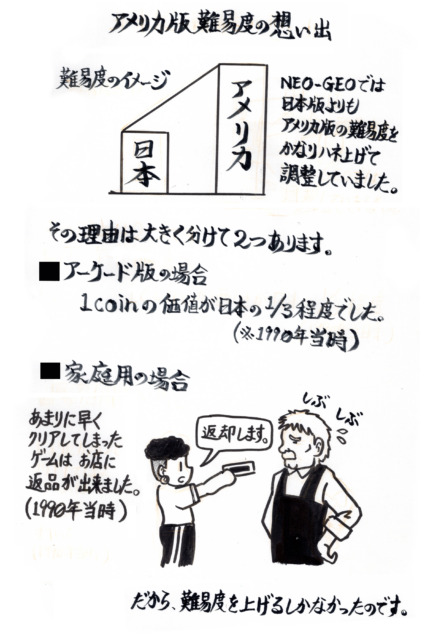 アメリカ版難易度の想い出
難易度のイメージ
日本
アメリカ
NEO-GEOでは
日本版よりも
アメリカ版の難易度を
かなりハネ上げて
調整していました。
その理由は大きく分けて2つあります。
■アーケード版の場合
1coinの価値が日本の1/3程度でした。
(※1990年当時)
■家庭用の場合
あまりに早く
クリアしてしまった
ゲームはお店に
返品が出来ました。
(1990年当時)
返却します。
しぶ
しぶ
だから、難易度を上げるしかなかったのです。